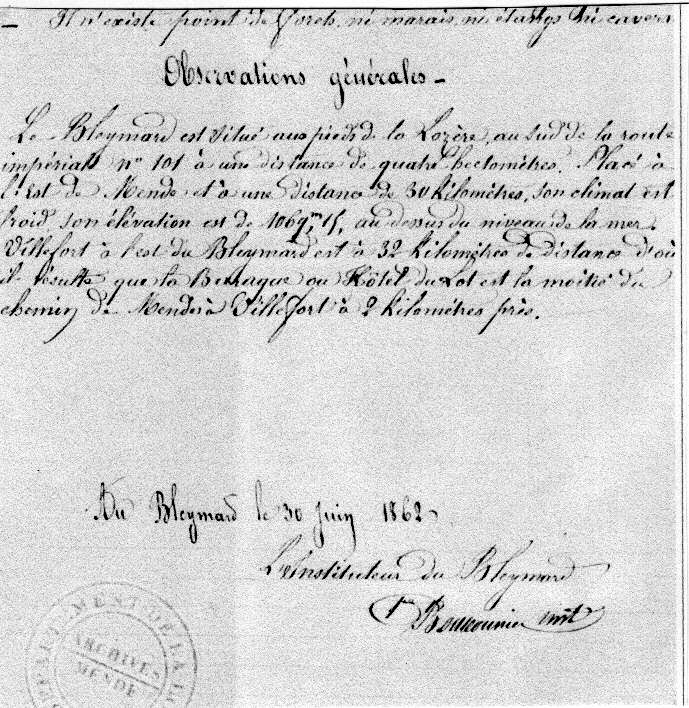 Il n'existe point de forets, ni marais, ni étangs ni cavern
Observations générales -
Le Bleymard est situé aux pieds de la Lozère, au sud de la route
impériale n° 101 à une distance de quatre hectomètres. Placé à
l'est de Mende et à une distance de 30 kilomètres, son climat est
froid son élévation est de 1069,m15, au dessus du niveau de la mer.
Villefort à l'est du Bleymard est à 32 kilomètres de distance d'où
il résulte que la Baraque ou Hôtel du Lot est la moitié du
chemin de Mende à Villefort à 2 kilomètres près.
Au Bleymard le 30 juin 1862
L'Instituteur du Bleymard
DÉPARTEMENT DE LA LO
ARCHIVES
MENDE